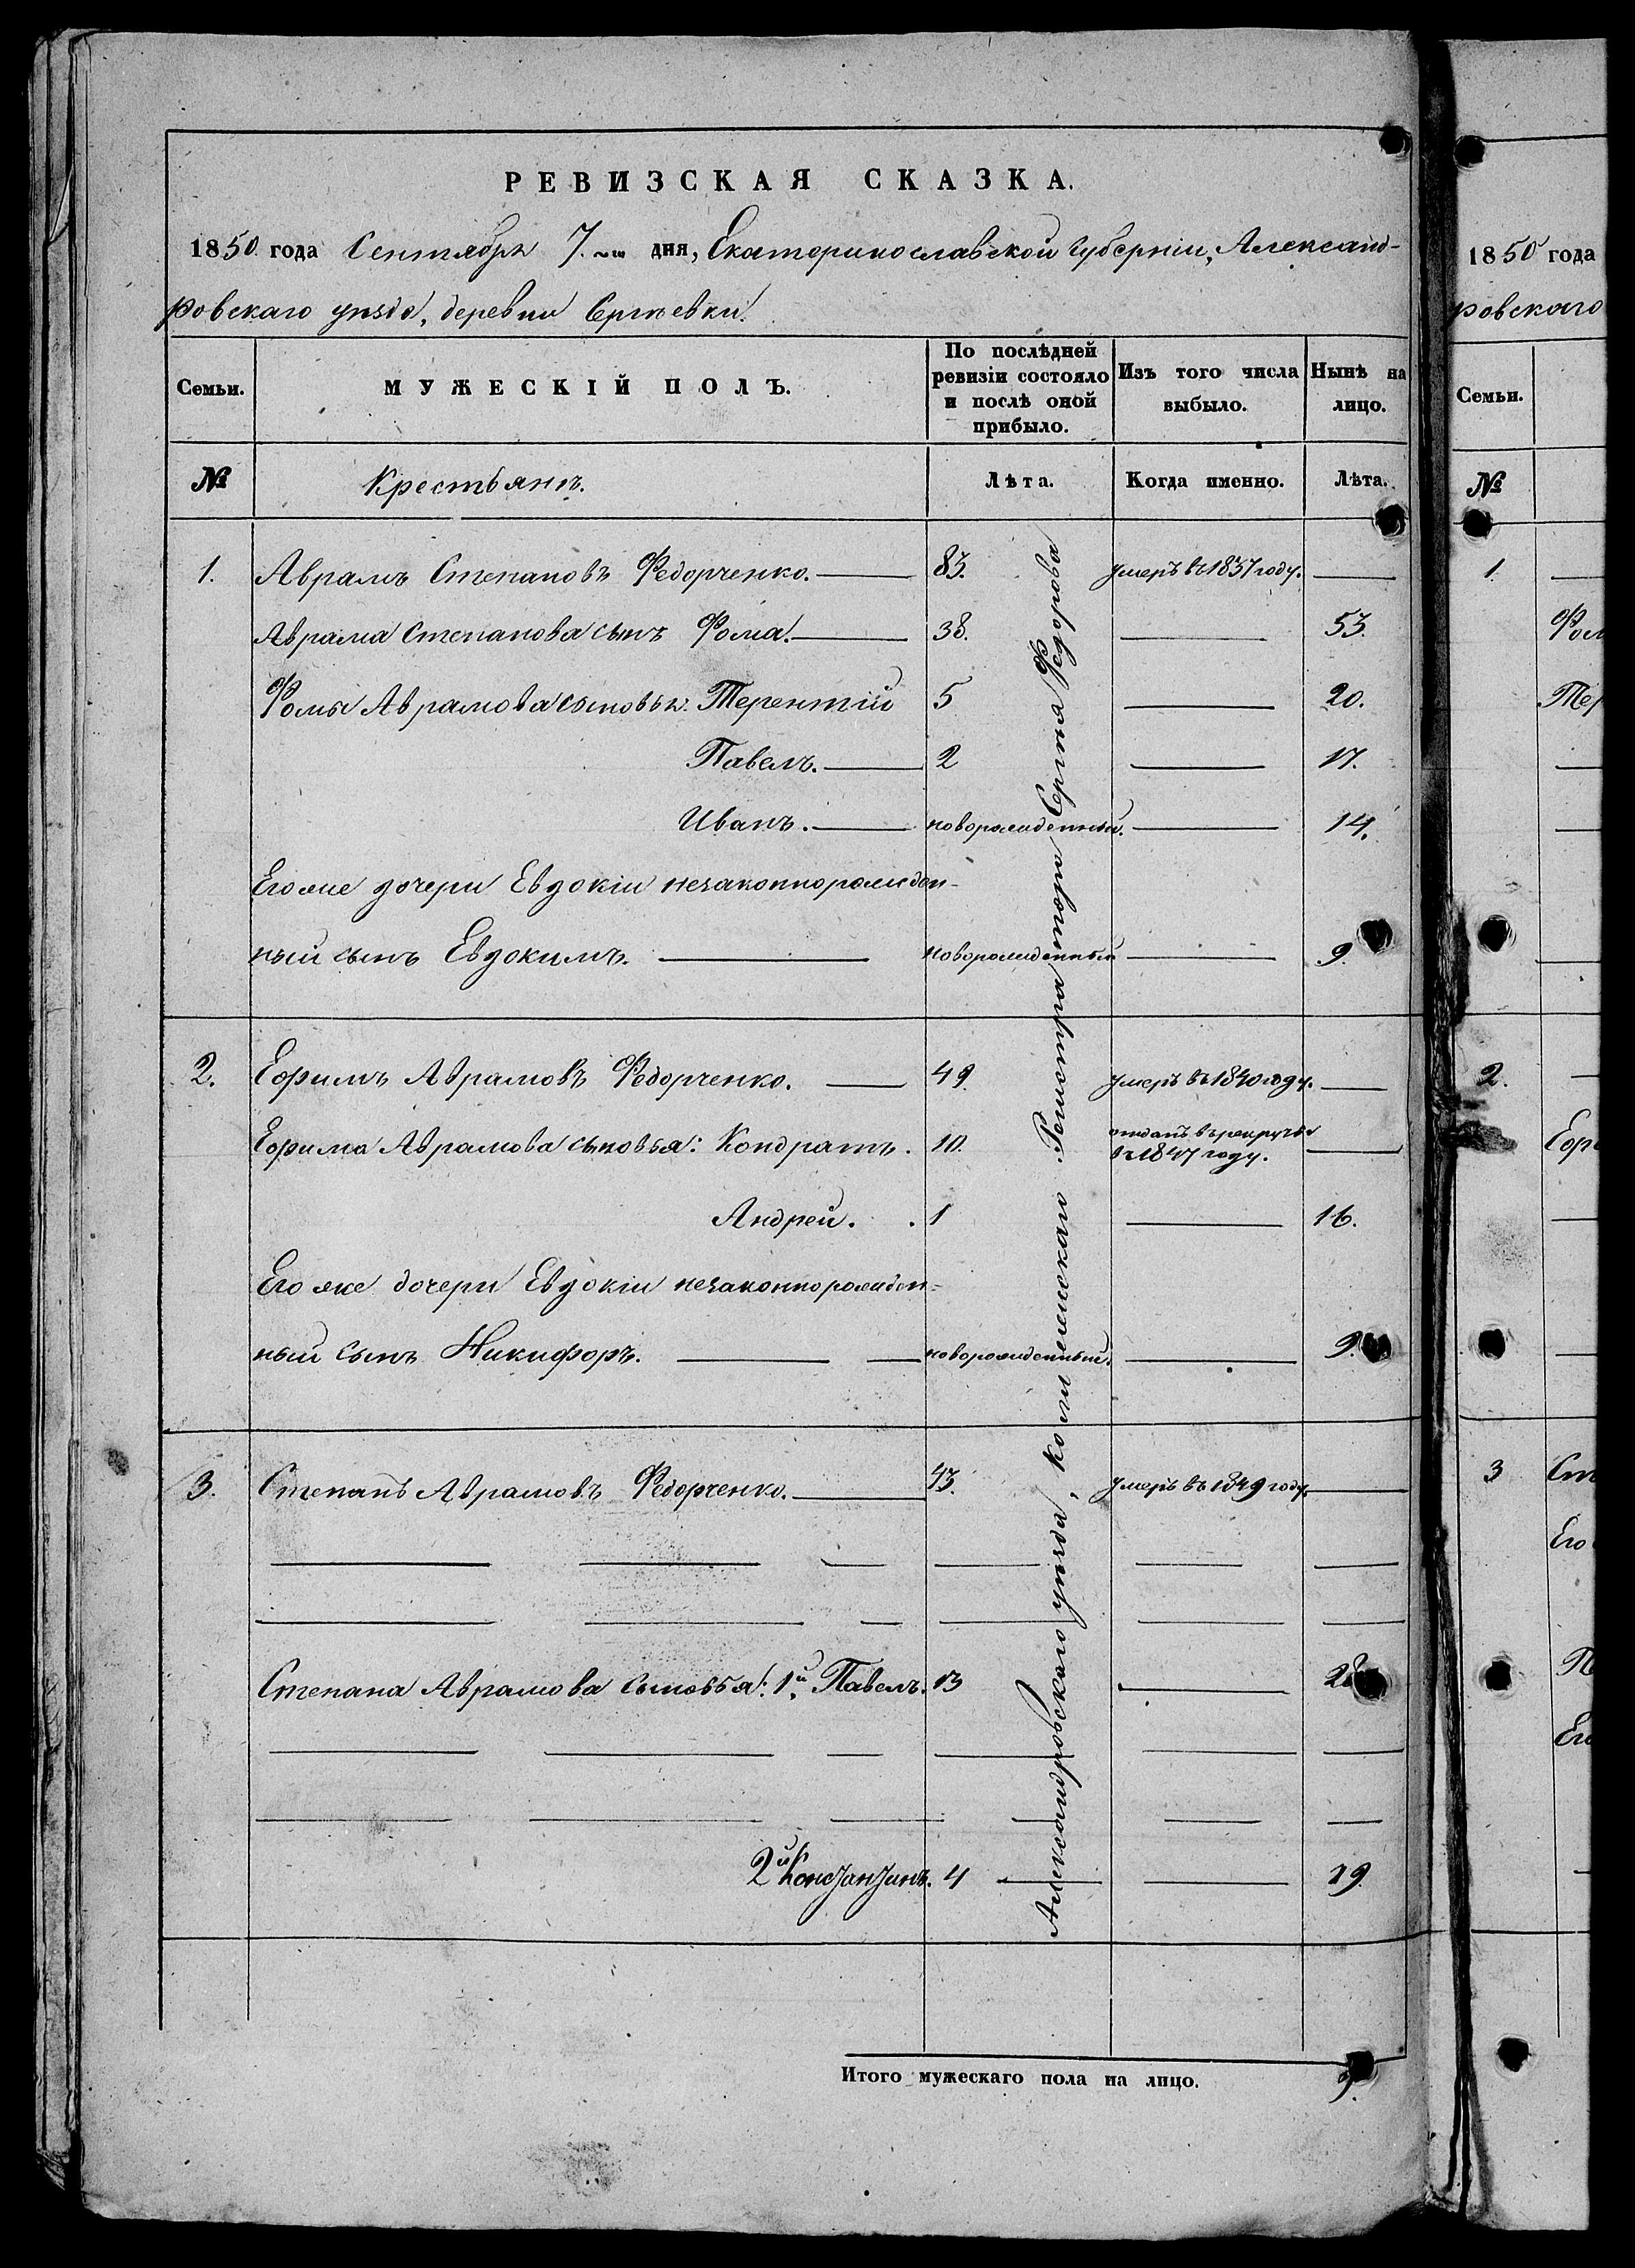 РЕВИЗСКАЯ СКАЗКА.
1850 года Сентября 7.го дня, Екатеринославской Губерніи, Александ-
ровскаго уѣзда, деревни Сергѣевки.
Семьи.
МУЖЕСКІЙ ПОЛЪ.
По послѣдней ревизіи состояло и послѣ оной прибыло.
Изъ того числа выбыло.
Нынѣ на лицо.
№ Крестьянъ. Лѣта. Когда именно. Лѣта.
1. Аврамъ Степановъ Федорченко. 83. умеръ въ 1837 году.
Аврама Степанова сынъ Фома. 38. 53.
Фомы Аврамова сыновья: Терентій 5 20.
Павелъ. 2 17.
Иванъ. новорожденный. 14.
Его же дочери Евдокіи незаконнорожден-
ный сынъ Евдокимъ. новорожденный 9.
2. Ефимъ Аврамовъ Федорченко. 49. умеръ въ 1840 году.
Ефима Аврамова сыновья: Кондратъ. 10. отданъ въ рекруты
въ 1847 году.
Андрей. 1 16.
Его же дочери Евдокіи незаконнорожден-
ный сынъ Никифоръ. новорожденный. 9.
3. Степанъ Аврамовъ Федорченко. 43. умеръ въ 1849 году.
Степана Аврамова сыновья: 1й Павелъ. 13 28
2й Константинъ. 4 19.
Итого мужескаго пола на лицо. 9.
Александровскаго уѣзда, коллежскаго Регистратора Сергѣя Федорова
1850 года
ровскаго
Семьи.
№
1.
Фом
Тер
2.
Ефи
3 Сте
Его
П
Его